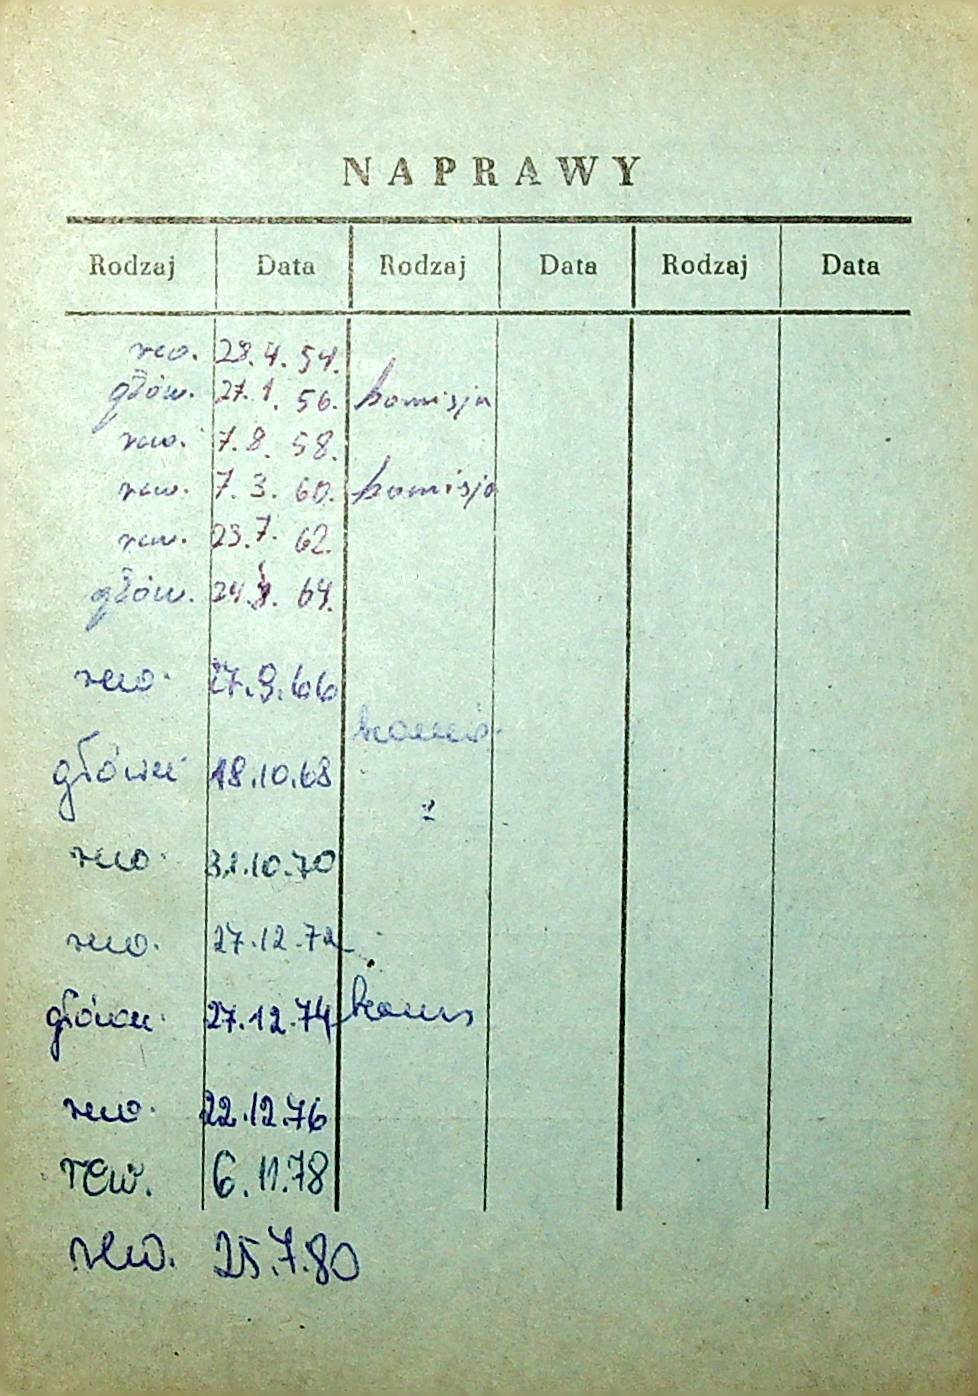 NAPRAWY
Rodzaj Data Rodzaj Data Rodzaj Data
rew. 28.4.54.
głów. 27.1.56. komisja
rew. 7.8.58.
rew. 7.3.60. komisja
rew. 23.7.62.
głów. 24. 64.
rew. 27.9.66
komis.
główn. 18.10.68
rew. 31.10.70
rew. 27.12.72
główn. 27.12.74 komis
rew. 22.12.76
rew. 6.11.78
rew. 25.7.80